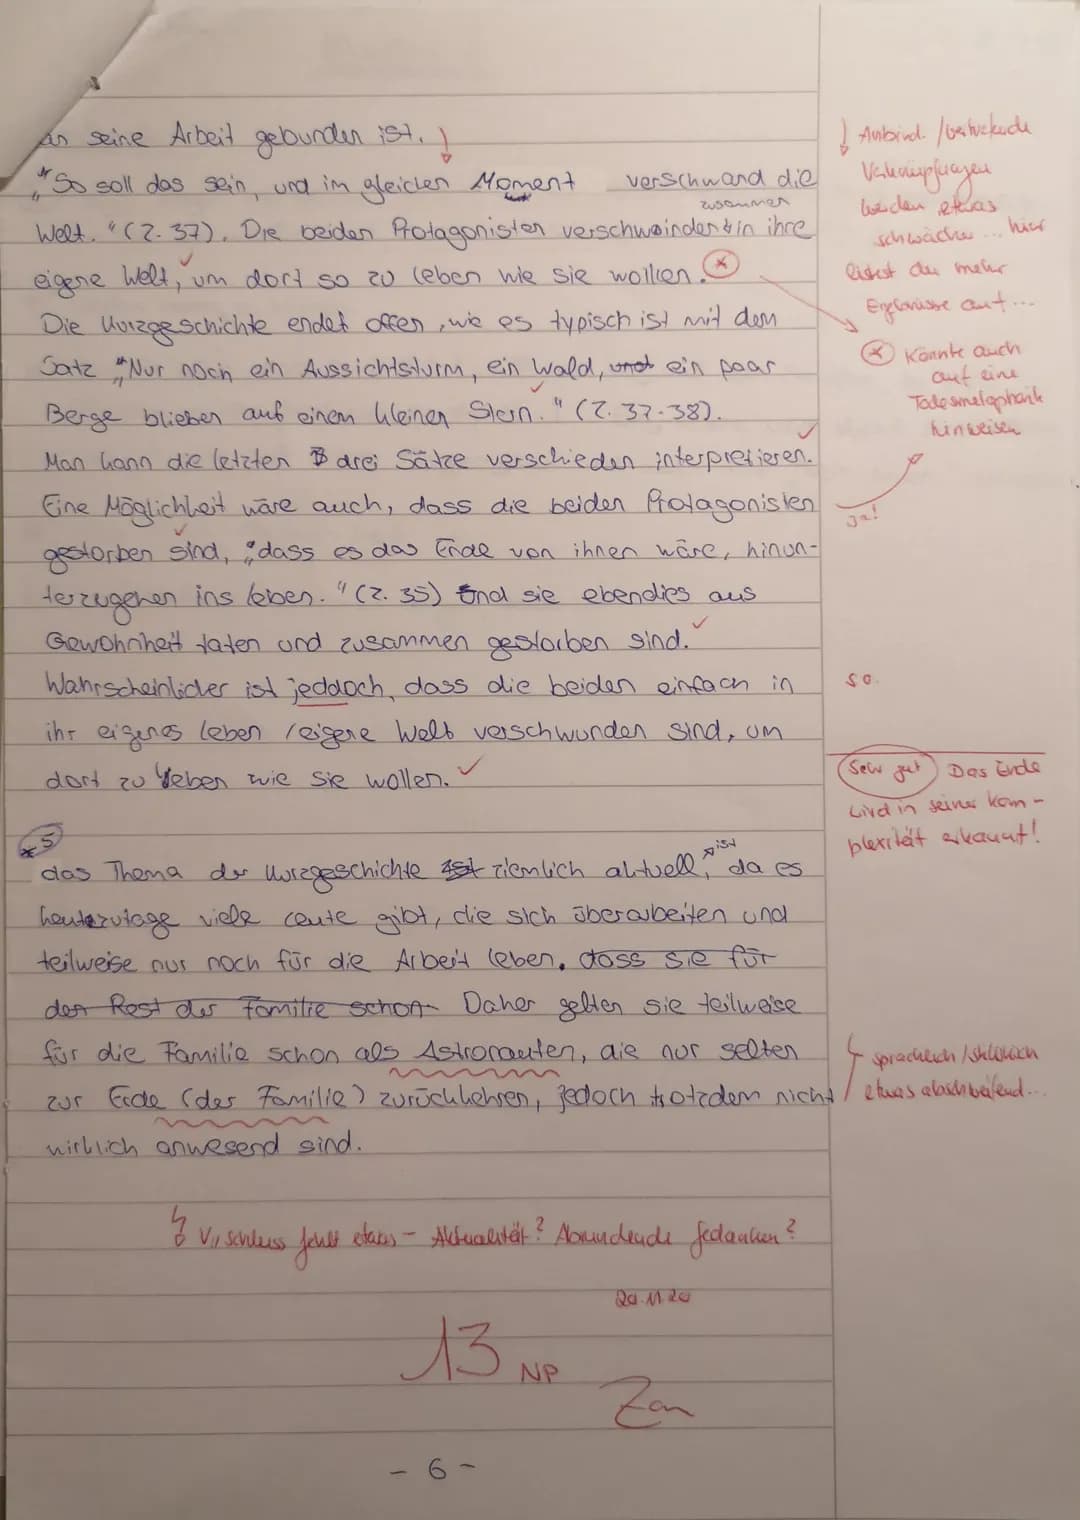 an seine Arbeit gebunden ist.
"So soll das sein, und im gleichen Moment verschwand die
Welt." (Z. 37). Die beiden Protagonisten verschwinden zusammen in ihre
eigene Welt, um dort so zu leben wie sie wollen.
Die Kurzgeschichte endet offen, wie es typisch ist mit dem
Satz "Nur noch ein Aussichtsturm, ein Wald, und ein paar
Berge blieben auf einem kleinen Stern." (Z. 37-38).
Man kann die letzten drei Sätze verschieden interpretieren.
Eine Möglichkeit wäre auch, dass die beiden Protagonisten
gestorben sind, "dass es das Ende von ihnen wäre, hinun-
terzugehen ins Leben." (Z. 35) und sie ebendies aus
Gewohnheit taten und zusammen gestorben sind.
Wahrscheinlicher ist jeddoch, dass die beiden einfach in
ihr eigenes Leben / eigene Welt verschwunden sind, um
dort zu leben wie sie wollen.
*5
das Thema der Kurzgeschichte ist ziemlich aktuell, ist da es
heutzutage viele Leute gibt, die sich überarbeiten und
teilweise nur noch für die Arbeit leben. dass sie für
den Rest der Familie schon Daher gelten sie teilweise
für die Familie schon als Astronauten, die nur selten
zur Erde (der Familie) zurückkehren, jedoch trotzdem nicht
wirklich anwesend sind.
Schluss fehlt etwas - Aktualität? Abrundende Gedanken?
20.11.20
13 NP
- 6 -
Anbind. /
Verknüpfungen
werden etwas
schwächer ... hier
listest du mehr
Ergebnisse auf...
Könnte auch
auf eine
Todesmetaphorik
hinweisen
ja!
so.
Sehr gut Das Ende
wird in seiner Kom-
plexität erkannt!
sprachlich / stilistisch
etwas abschweifend...